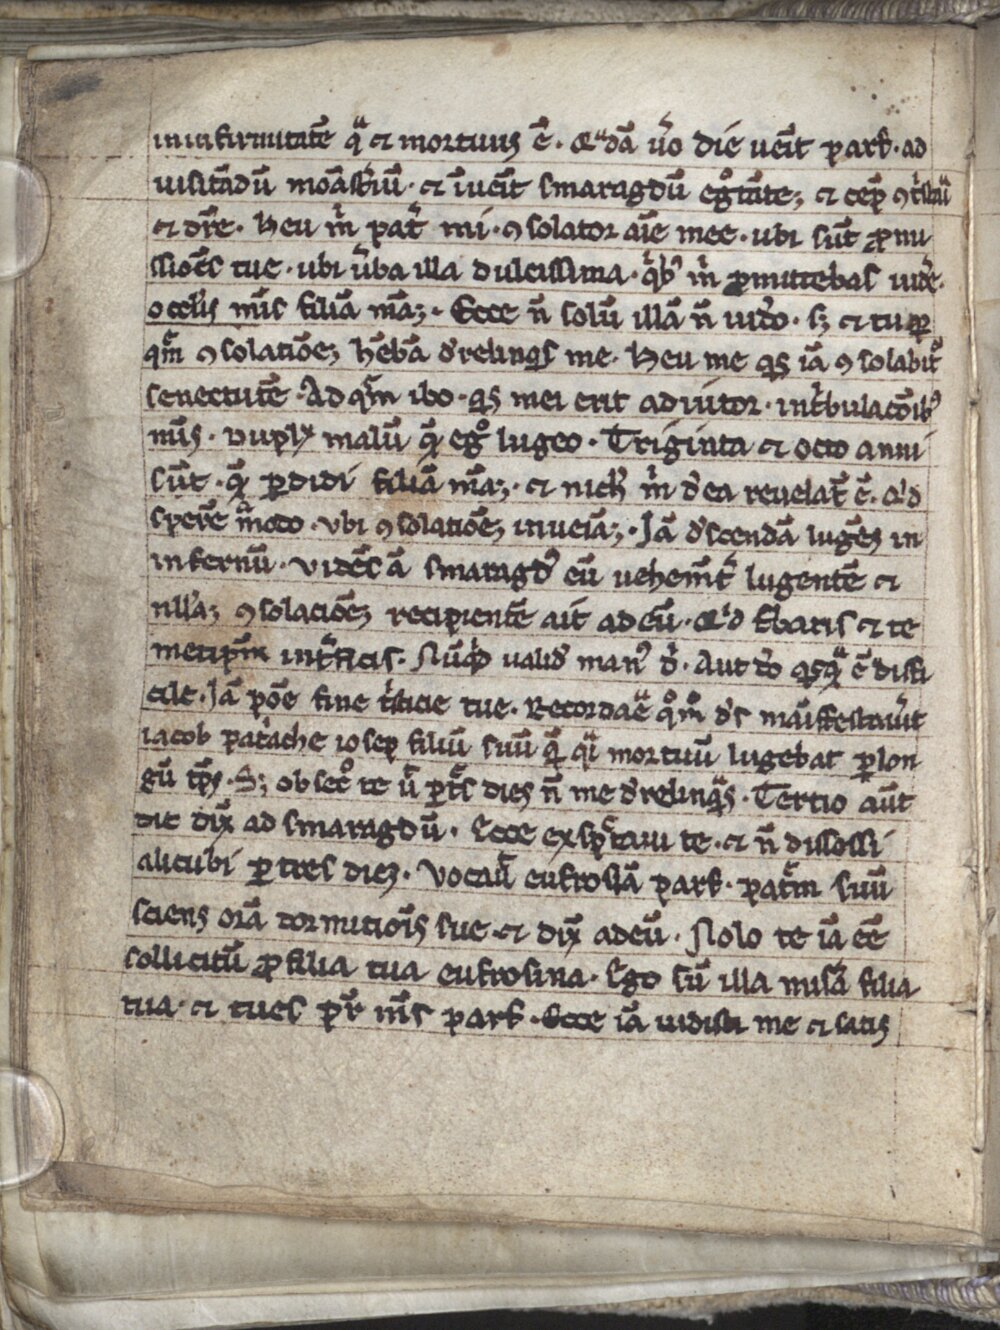 in infirmitatē qᵃ ⁊ mortuus ē. Qᵃdā ů̃o die uēit parf. ad
uisitādū moāst̾iū. ⁊ īuēit smaragdū eg̊tātē; ⁊ cep ꝯt̾stari
⁊ dr̄e. Heu m̄ pat̾ mi. ꝯsolator aīe mee. ubi sūt ꝓmi
ssiōēs tue. ubi u̾ba illa dulcissima. qⁱbꝰ m̄ ꝓmittebas uid̾e.
ocul̾is m̄is filiā mā;. Ecce n̄ solū illā n̄ uid̾o. sꝫ ⁊ tu ꝑ
qm̄ ꝯsolatiōe; hēbā d̾relinqⁱs me. Heu me qⁱs iā ꝯsolabit̾
senectutē. Ad qm̄ ibo. qⁱs mei erit adiutor. in t̾bulacōibꝰ
m̄is. Duplx malū ꝙ egº lugeo. Triginta ⁊ octo anni
sūt. ꝙ ꝑdidi filiā mā;. ⁊ nichl̾ m̄ d̾ ea reuelat̄ ē. Qⁱd
sper̄e mōdo. Vbi ꝯsolatiōe; inueiā;. Jā d̾scendā lugēs in
infernū. Vidēs ā smaragdꝰ eū uehem̄t̾ lugentē ⁊
nllā; ꝯsolaciōe; recipientē ait ad eū. Qⁱd t̾baris ⁊ te
metipm̄ int̾ficis. Nūqⁱd ualidꝰ manꝰ d̾. Aut d̾o qⁱsqᵃ ē diffi
cile. Jā pōe fine t̾sticie tue. Recordaē qºm̊ d̾s māifestauit
iacob patache iosep filiū suū q̄ qⁱ mortuū lugebat ꝑ lon
gū tp̄s. Sꝫ obsecº te ū ꝑ t̄s dies n̄ me d̾relinqᵃs. Tertio aūt
die dix̄ ad smaragdū. Ecce exsp̄ctaui te. ⁊ n̄ discessi
alicubi ꝑ tres dies. Vocauⁱ eufrosīa parf. pat̾m suū
sciens orā dormitiōis sue. ⁊ dix̄ ad eū. Nolo te iā ēē
sollicitū ꝓ filia tua eufrosina. Ego sū illa mis̾a filia
tua. ⁊ tu es pr̄ m̄s parf. Ecce iā uidisti me ⁊ satis